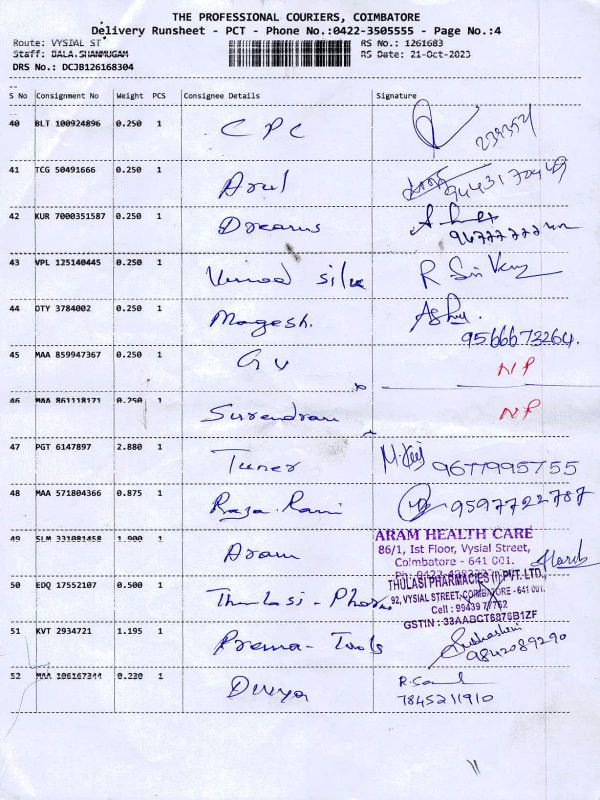 THE PROFESSIONAL COURIERS, COIMBATORE
Delivery Runsheet - PCT - Phone No.:0422-3505555 - Page No.:4
Route: VYSIAL ST
RS No.: 1261683
Staff: BALA.SHANMUGAM
RS Date: 21-Oct-2023
DRS No.: DCJB126168304
S No Consignment No Weight PCS Consignee Details Signature
40 BLT 100924896 0.250 1 CPC 239354
41 TCG 50491666 0.250 1 Arul 9443170449
42 KUR 7000351587 0.250 1 Dreams
43 VPL 125140445 0.250 1 Vinod silk R Sri Veny
44 OTY 3784002 0.250 1 Magesh. Ashu.
9566673264.
45 MAA 859947367 0.250 1 GV NP
46 MAA 861118171 0.250 1 Surendran NP
47 PGT 6147897 2.880 1 Tuner 9677995755
48 MAA 571804366 0.875 1 Raja-Rani 9597722787
49 SLM 331081458 1.900 1 Aram
ARAM HEALTH CARE
86/1, Ist Floor, Vysial Street,
Coimbatore - 641 001.
50 EDQ 17552107 0.500 1 Thulasi-Pharma
THULASI PHARMACIES (I) PVT. LTD.,
92, VYSIAL STREET, COIMBATORE - 641 001.
Cell : 99439 77762
GSTIN : 33AABCT6876B1ZF
51 KVT 2934721 1.195 1 Prema-Tools Subhashini
9842089290
52 MAA 106167344 0.230 1 Divya
7845211910